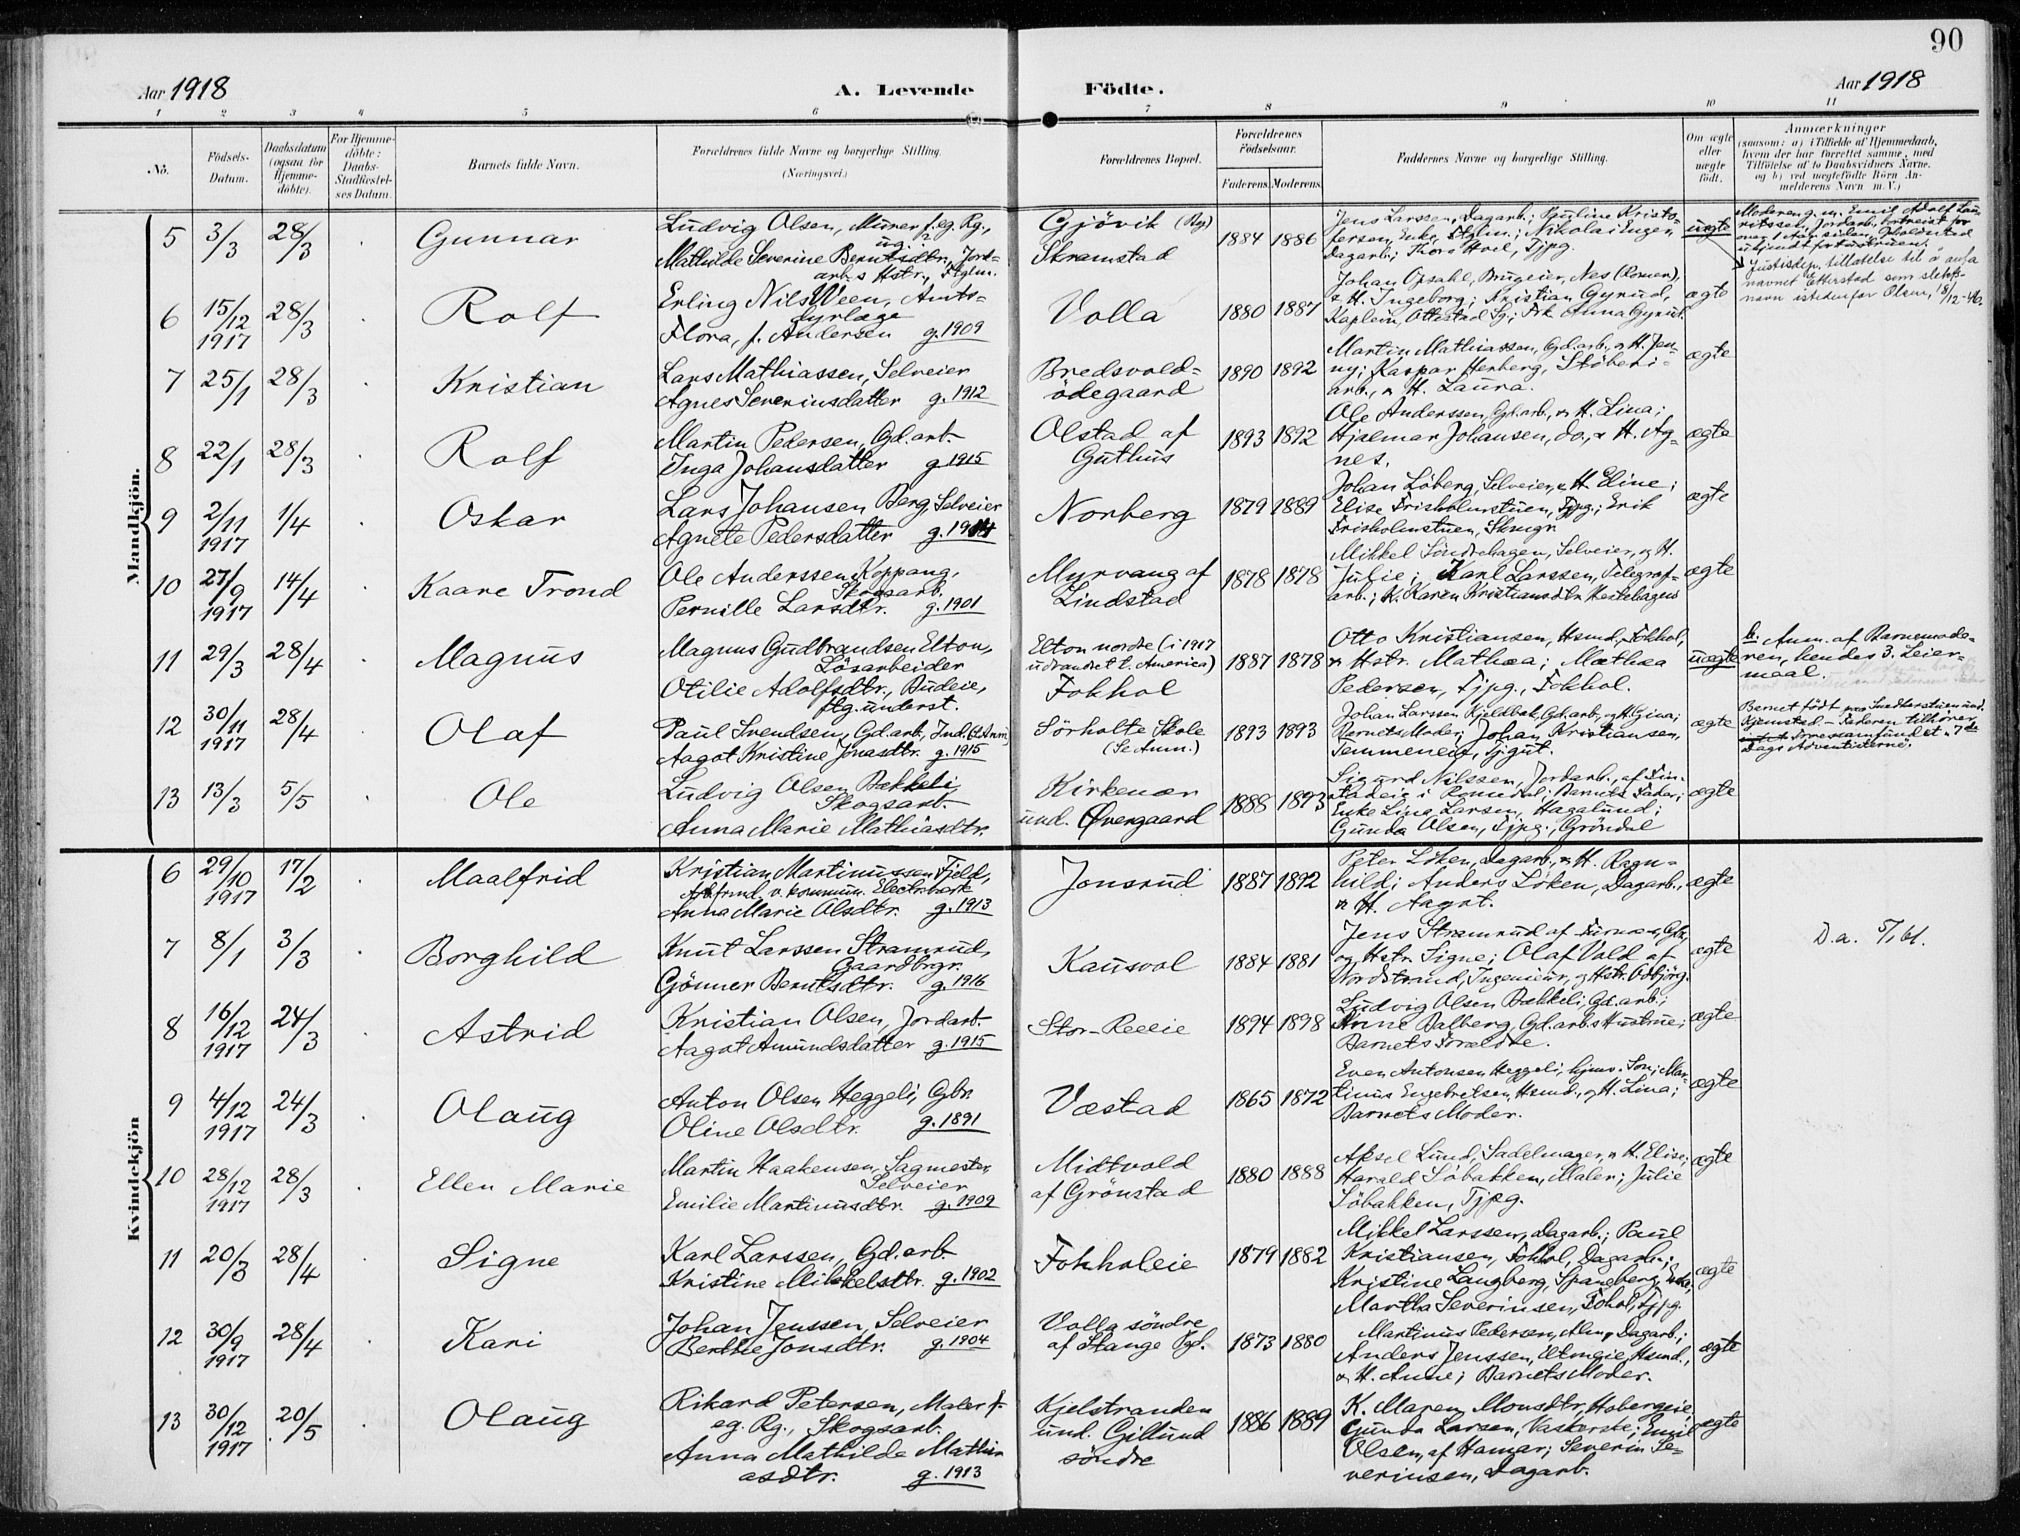 90
Aar 1918 A. Levende Fødte. Aar 1918
1 2 3 4 5 6 7 8 9 10 11
No.
Födsels-Datum.
Daabsdatum (ogsaa for Hjemme-döbte).
For Hjemme-döbte: Daabs-Stadfæstel-ses Datum.
Barnets fulde Navn.
Forældrenes fulde Navne og borgerlige Stilling. (Næringsvei.)
Forældrenes Bopæl.
Forældrenes Födselsaar.
Faderens. Moderens.
Faddernes Navne og borgerlige Stilling.
Om ægte eller uægte födt.
Anmærkninger
(saasom: a) i Tilfælde af Hjemmedaab, hvem der har forrettet samme, med Tilföielse af to Daabsvidners Navne, og b) ved uægtefödte Börn Anmelderens Navn m. V.)
Mandkjön.
5 3/3 28/3 Gunnar
Ludvig Olsen, Murer f. eg. Rg., ug.
Mathilde Severine Berntsdtr., Jordarb.s Hstr.,
Gjövik (By)
Skramstad
1884 1886
Jens Larssen, Dagarb.; Pauline Kristofersen, Enke, ; Nikolai Enger, Dagarb.; Thora Hoel, Tjpg.
uægte
Moderen g. m. Emil Adolf Lauritssen, Jordarb., bortreist for over 1 Aar siden, Opholdssted ubekjendt
Justisdep. tillatelse til å anta navnet Etterstad som slektsnavn istedenfor Olsen, 18/12-46.
6 15/12 1917 28/3 Rolf
Erling Nils Ween, Amtsdyrlæge
Flora, f. Andersen g. 1909
Volla
1880 1887
Johan Opsahl, Brugeier, Nes (Romen), & H. Ingeborg; Kristian Gyrud, Kaplein, Ottestad Sg.; Frk. Anna Gyrud.
ægte
7 25/1 28/3 Kristian
Lars Mathiassen, Selveier
Agnes Severinsdatter g. 1912
Bredsvold-ödegaard
1890 1892
Martin Mathiassen, Gd.arb., & H. Jenny; Kaspar Herberg, Stöberiarb., & H. Laura.
ægte
8 22/1 28/3 Rolf
Martin Pedersen, Gd. arb.
Inga Johansdatter g. 1915
Olstad af Guthus
1893 1892
Ole Anderssen, Gd. arb., & H. Lina; Hjalmar Johansen, do., & H. Agnes.
ægte
9 2/11 1917 1/4 Oskar
Lars Johansen Berg, Selveier
Agnete Pedersdatter g. 1914
Norberg
1879 1889
Johan Löberg, Selveier, & H. Eline; Elise Frisholmstuen, Tjpg.; Erik Frisholmstuen, Skmgr.
ægte
10 27/9 1917 14/4 Kaare Trond
Ole Anderssen Koppang, Skogsarb.
Pernille Larsdtr. g. 1901
Myrvang af Lindstad
1878 1878
Mikkel Söndrehagen, Selveier, og H. Julie; Karl Larssen, Telegrafarb.; K. Karen Kristiansdtr.
ægte
11 29/3 28/4 Magnus
Magnus Gudbrandsen Elton, Lösarbeider
Otilie Adolfsdtr., Budeie, ftg. underst.
Elton nordre (i 1917 udvandret t. America)
Fokhol
1887 1878
Otto Kristiansen, Hsmd, Fokhol, & Hstr. Mathea; Mathea Pedersen, Tjpg., Fokhol.
uægte
b. Anm. af Barnemoderen, hendes 3. Leiermaal.
12 30/11 1917 28/4 Olaf
Paul Svendsen, Gd. arb., Ind. (Se Anm.)
Aagot Kristine Jonasdtr. g. 1915
Sörholte Skole (Se Anm.)
1893 1893
Johan Larssen Kjeldbak, Gd. arb., og H. Gina; Barnets Moder; Johan Kristiansen, Temmereie, Tjgut.
ægte
Barnet födt paa und. Kjemstad. - Faderen tilhörer Trossamfundet „7de Dags Adventisterne".
13 13/3 5/5 Ole
Ludvig Olsen Bækkeli, Skogsarb.
Anna Marie Mathiasdtr.
Kirkenær und. Övergaard
1888 1893
Sigurd Nilssen, Jordarb., af i Romedal; Barnets Fader; Enke Lina Larsen, Hagalund; Gunda Olsen, Tjpg., Gröndal
ægte
Kvindekjön
6 29/10 1917 17/2 Maalfrid
Kristian Martinussen Fjeld, Arb.frmd. v. kommun. Electr.værk
Anna Marie Olsdtr. g. 1913
Jonsrud
1887 1892
Peter Löken, Dagarb., & H. Ragnhild; Anders Löken, Dagarb., & H. Aagot.
ægte
7 8/1 3/3 Borghild
Knut Larssen Stramrud, Gaardbrgr.
Gönner Berntsdtr. g. 1916
Kausvol
1884 1881
Jens Stramrud af Furnes, Gbr., og Hstr. Signe; Olaf Vold af Nordstrand, Ingeniör, og Hstr. Asbjörg.
ægte
D.a. 5/1 61.
8 16/12 1917 24/3 Astrid
Kristian Olsen, Jordarb.
Aagot Amundsdatter g. 1915
Stor-Reeeie
1894 1898
Ludvig Olsen Bækkeli, Gd. arb.; Anne Balberg, Gd. arb.s Hustrue; Barnets Forældre.
ægte
9 4/12 1917 24/3 Olaug
Anton Olsen Heggeli, Gbr.
Oline Olsdtr. g. 1891
Væstad
1865 1872
Even Antonsen Heggeli, hjmv. Sön; Martinus Engebretsen, Hsmd., og H. Lina; Barnets Moder.
ægte
10 28/12 1917 28/3 Ellen Marie
Martin Haakensen, Sagmester, Selveier
Emilie Martinusdtr. g. 1909
Midtvold af Grönstad
1880 1888
Aksel Lund, Sadelmager, & H. Elise; Harald Söbakken, Maler; Julie Söbakken, Tjpg.
ægte
11 20/3 28/4 Signe
Karl Larssen, Gd. arb.
Kristine Mikkelsdtr. g. 1902
Fokholeie
1879 1882
Mikkel Larssen, Dagarb.; Paul Kristiansen, Fokhol, Dagarb.; Kristine Langberg, Spangberg, Enke, Martha Severinsen, Fokhol, Tjpg.
ægte
12 30/9 1917 28/4 Kari
Johan Jenssen, Selveier
Berthe Jonsdtr. g. 1904
Volla söndre af Stange Pgl.
1873 1880
Martinus Pedersen, Alm, Dagarb.; Anders Jenssen, Hsmd., & H. Anne; Barnets Moder.
ægte
13 30/12 1917 20/5 Olaug
Rikard Petersen, Maler f. eg. Rg., Skogsarb.
Anna Mathilde Mathiasdtr. g. 1913
Kjelstranden und. Gillund söndre
1886 1889
K. Maren Monsdtr, Hobergeie, Gunda Larsen, Vaskerske; Emil Olsen, af Hamar; Severin Severinsen, Dagarb.
ægte